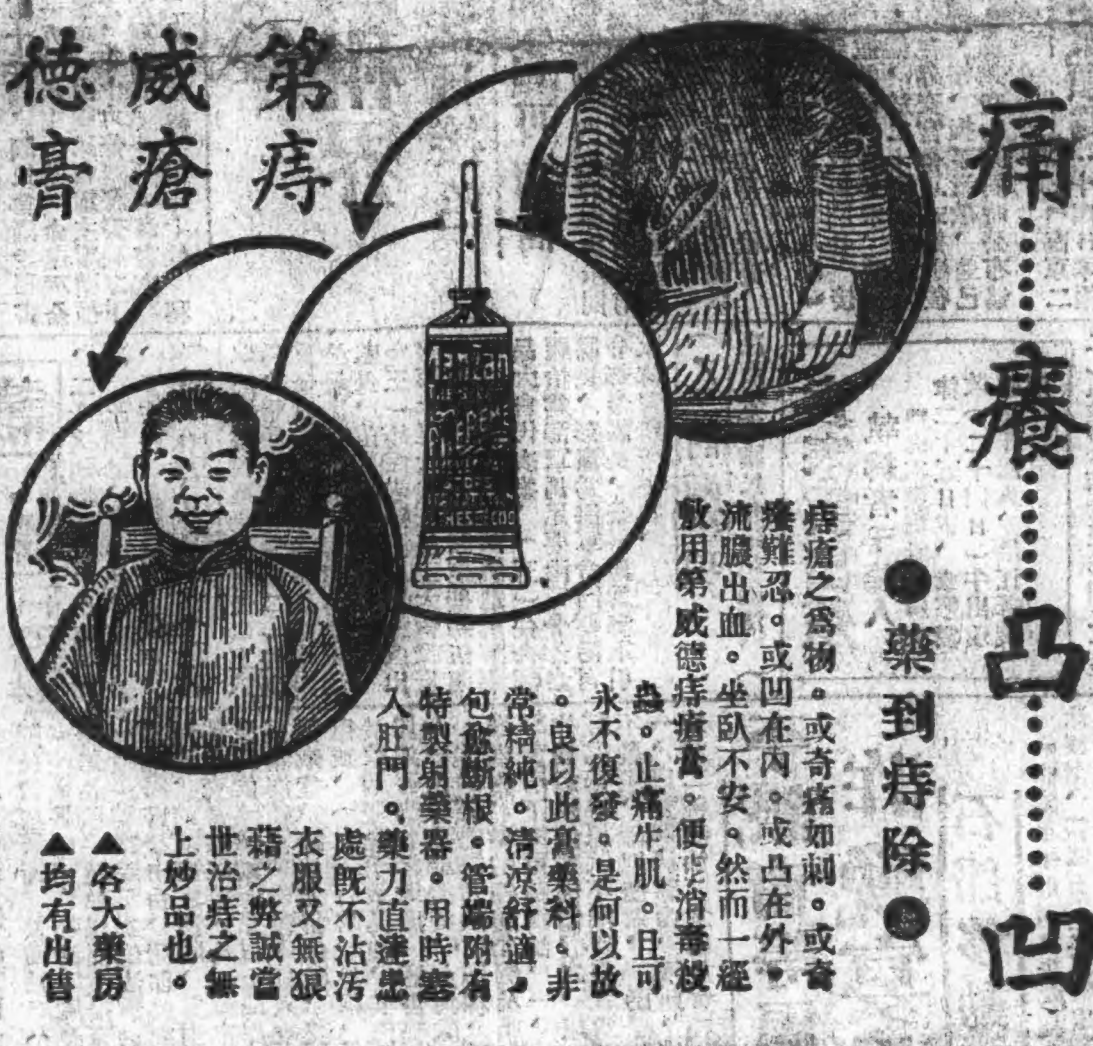 痛……癢……凸……凹
●藥到痔除●
痔瘡之爲物。或奇痛如刺。或奇
癢難忍。或凹在內。或凸在外。
流膿出血。坐臥不安。然而一經
敷用第威德痔瘡膏。便能消毒殺
蟲。止痛生肌。且可
永不復發。是何以故
。良以此膏藥料。非
常精純。清涼舒適。
包愈斷根。管端附有
特製射藥器。用時塞
入肛門。藥力直達患
處既不沾污
衣服又無狼
藉之弊誠當
世治痔之無
上妙品也。
▲各大藥房
▲均有出售
第威德
痔瘡膏
ManZan